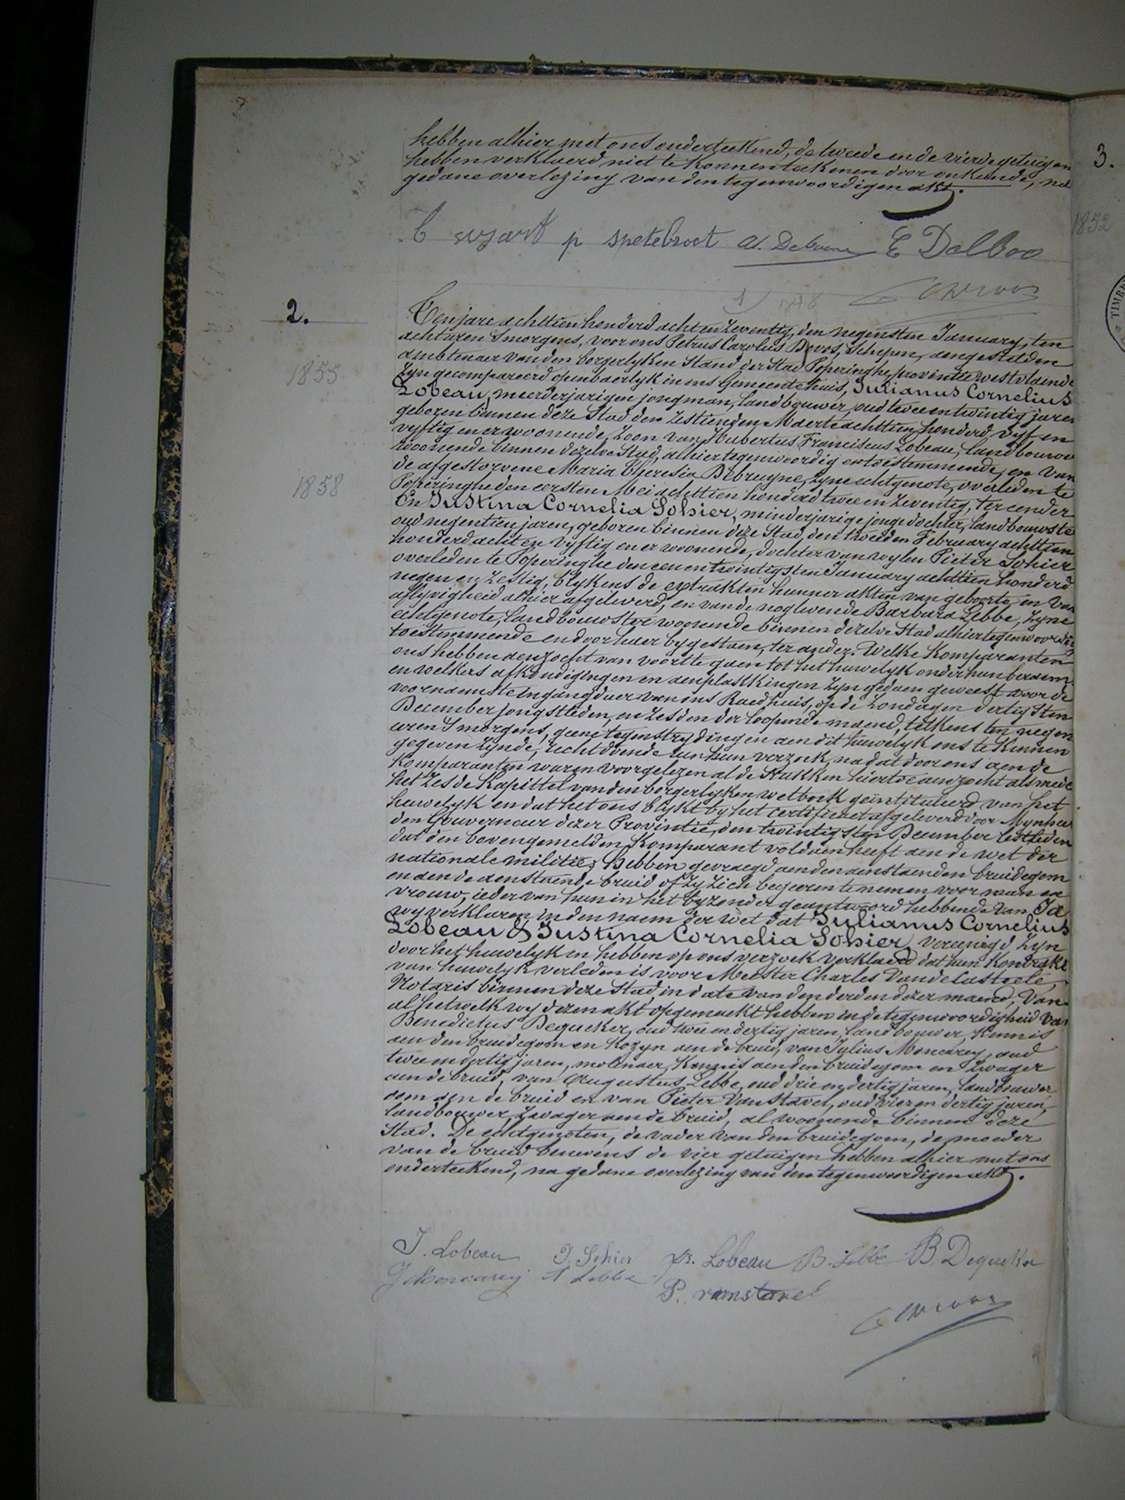 hebben alhier met ons onderteekend, de tweede en de vierde getuigen
hebben verklaerd niet te konnen teekenen door onkunde, na
gedane overlezing van den tegenwoordigen akt.
p spetebroot A. E Dalboo
2.
Ten jare achttien honderd acht en zeventig, den negensten January, ten
acht uren 's morgens, voor ons Petrus Carolus Devos, schepen, aengestelden
ambtenaer van den borgerlyken Stand der Stad Poperinghe, provintie westvlaende
zyn gecompareerd openbaerlyk in ons Gemeentehuis, Julianus Cornelius
1855
Lobeau, meerderjarigen jongman, landbouwer, oud twee en twintig jaren
geboren binnen deze Stad den zesthienden Maerte achttien honderd vyf en
vyftig en er woonende, zoon van Hubertus Franciscus Lobeau, landbouwer
woonende binnen dezelve Stad, alhier tegenwoordig en toestemmende, en van
de afgestorvene Maria Theresia Debruyne, zyne echtgenote, overleden te
1858
Poperinghe den eersten Mei achttien honderd twee en zeventig, ter eender
En Justina Cornelia Sohier, minderjarige jonge dochter, landbouwster
oud negentien jaren, geboren binnen deze Stad, den tweeden February achttien
honderd acht en vyftig en er woonende, dochter van wylen Pieter Sohier
overleden te Poperinghe den een en twintigsten January achttien honderd
negen en zestig, blykens de extrakten hunner akten van geboorte, en van
aflyvigheid alhier afgeleverd, en van de nog levende Barbara Lebbe, zyne
echtgenote, landbouwster woonende binnen dezelve Stad alhier tegenwoordig
toestemmende en door haer bygestaen, ter andere. Welke Komparanten
ons hebben aenzocht van voorts te gaen tot het huwelyk onder hun beraemd
en welkers afkondigingen en aenplakkingen zyn gedaen geweest voor de
voornaemste ingangdeur van ons Raedhuis, op de zondagen dertigsten
December jongstleden, en zesden der loopende maend, telkens ten negen
uren 's morgens, geene tegenstrydingen aen dit huwelyk ons te kennen
gegeven zynde, recht doende aen hun verzoek, na dat door ons aen de
Komparanten waren voorgelezen al de stukken hiertoe aenzocht alsmede
het zesde Kapittel van den borgerlyken wetboek geïntituleerd van het
huwelyk en dat het ons blykt by het certificaet afgeleverd door Mynheer
den Gouverneur dezer Provintie, den twintigsten December lestleden
dat den bovengemelden Komparant voldaen heeft aen de wet der
nationale militie; Hebben gevraegd aen den aenstaenden bruidegom
en aen de aenstaende bruid of zy zich begeeren te nemen voor man en
vrouw, ieder van hun in het byzonder geantwoord hebbende van Ja
wy verklaren in den naem der wet dat Julianus Cornelius
Lobeau & Justina Cornelia Sohier, vereenigd zyn
door het huwelyk en hebben op ons verzoek verklaerd dat hun kontrakt
van huwelyk verleden is voor Meester Charles Vandelasteele,
Notaris binnen deze Stad in date van den derden dezer maend, Van
al hetwelk wy dezen akt opgemaekt hebben in de tegenwoordigheid van
Benedictus Dequeker, oud twee en dertig jaren, landbouwer, Kennis
aen den bruidegom en kozyn aen de bruid, van Julius Moncarey, oud
twee en dertig jaren, molenaer, Kennis aen den bruidegom en zwager
aen de bruid, van Augustus Lebbe, oud drie en dertig jaren, landbouwer
oom aen de bruid en van Pieter Vanstavel, oud vier en dertig jaren,
landbouwer, zwager aen de bruid, al woonende binnen deze
Stad. De echtgenoten, de vader van den bruidegom, de moeder
van de bruid benevens de vier getuigen hebben alhier met ons
onderteekend, na gedane overlezing van den tegenwoordigen akt.
J. Lobeau J. Sohier Lobeau B. Lebbe B. Dequeker
J Moncarey A Lebbe P. vanstavel
3.
1852
TIMBR